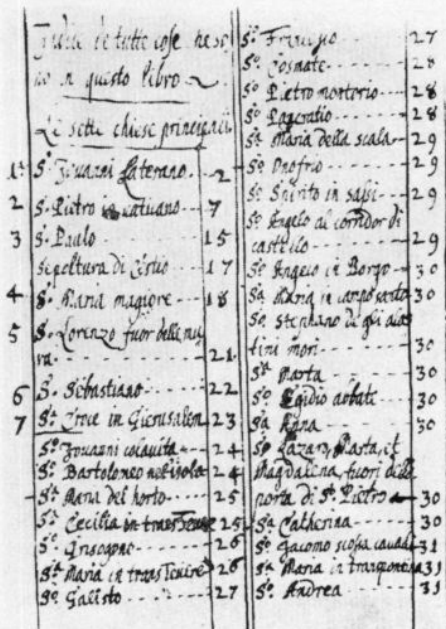 Indice de tutte cose che so
no in questo libro
Le sette chiese principali
1ª Sº Giovanni Laterano 2
2 Sº Pietro in vatucano 7
3 Sº Paulo 15
sepoltura di Cestio 17
4 Sª Maria magiore 18
5 Sº Lorenzo fuor delle mu
ra 21
6 Sº Sebastiano 22
7 Sta Croce in Gierusalem 23
Sº Giovanni colavita 24
Sº Bartolomeo nel isola 24
Sta Maria del horto 25
Sta Cecilia in trastevere 25
Sº Grisogono 26
Sta Maria in trastevere 26
Sº Calisto 27
Sº Francesco 27
Sº Cosmate 28
Sº Pietro montorio 28
Sº Pancratio 28
Sª Maria della scala 29
Sº Onofrio 29
Sº Spirito in sassi 29
Sº Angelo al corridor di
castello 29
Sº Angelo in Borgo 30
Sª Maria in campo santo 30
Sº Stephano de gli
tini mori 30
Sta Marta 30
Sº Egidio abbate 30
Sª Anna 30
Sº Lazaro, Marta, et
Magdalena, fuori della
porta di Sº Pietro 30
Sª Catherina 30
Sº Giacomo scossa cavalli 31
Sª Maria in transpontina 31
Sº Andrea 31